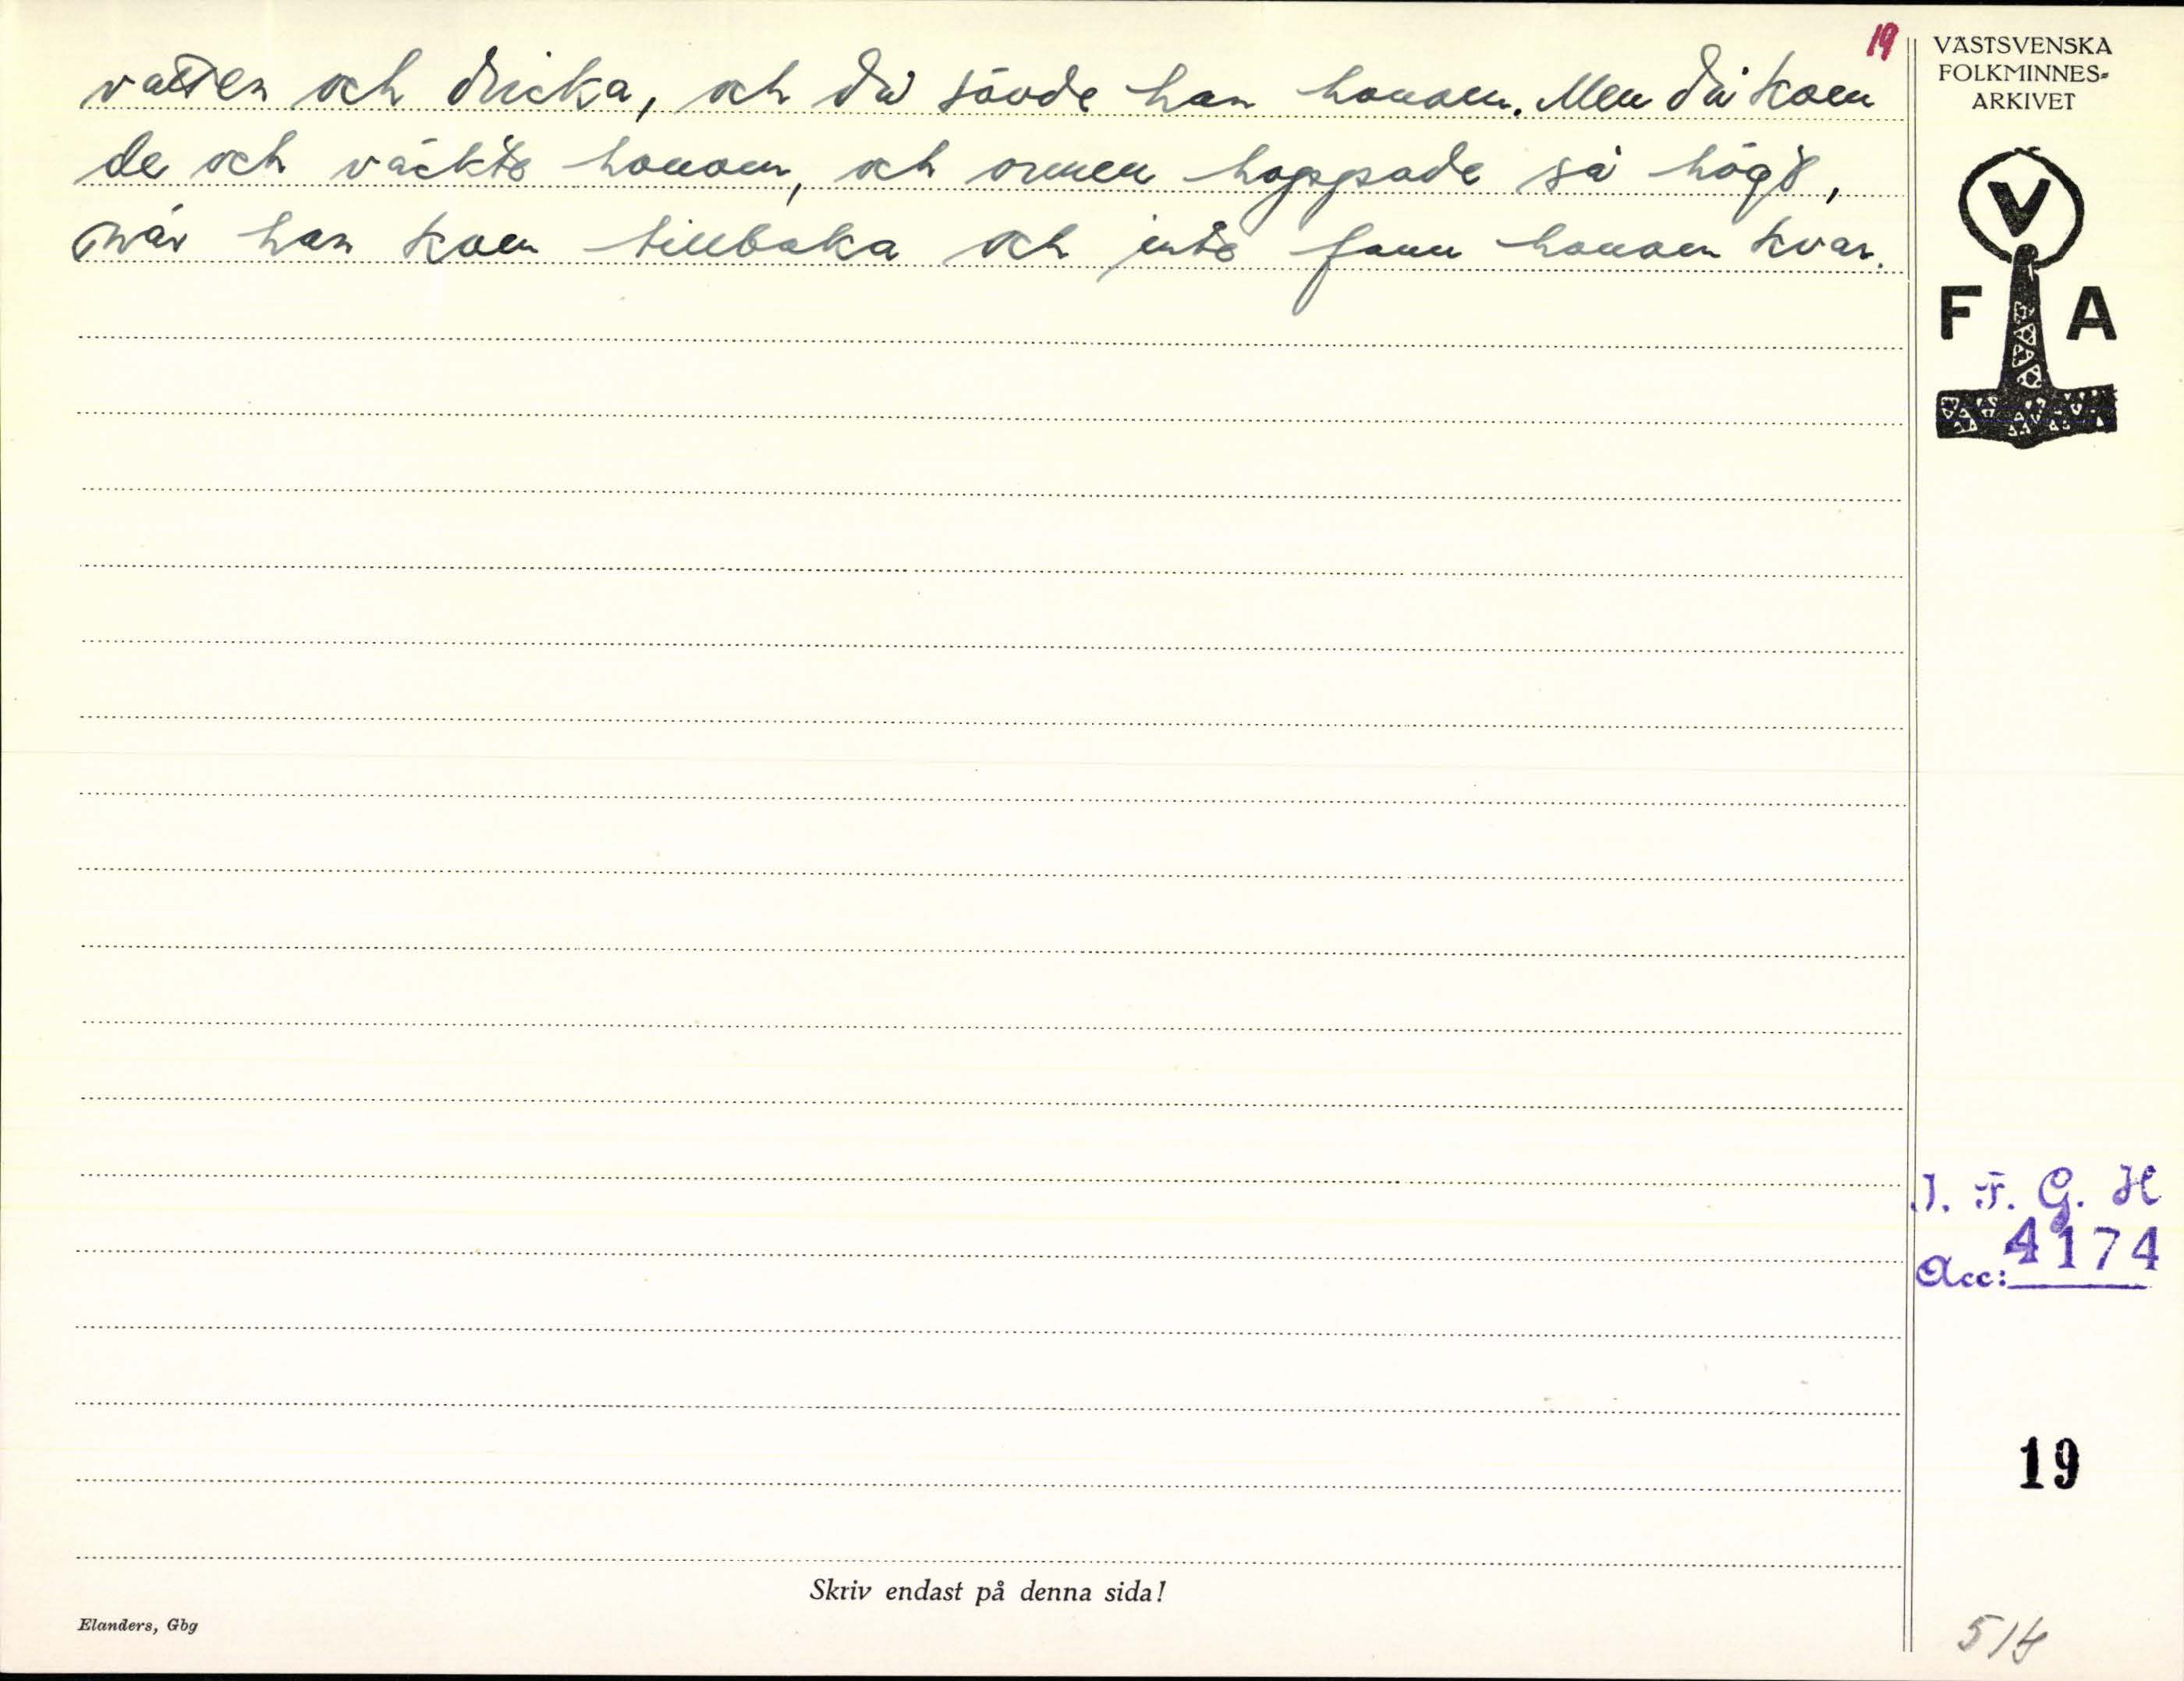 19
vatten och dricka, och då sövde han honom. Men då kom
de och väckte honom, och ormen hoppade så högt,
när han kom tillbaka och inte fann honom kvar.
VÄSTSVENSKA
FOLKMINNES-
ARKIVET
V
F A
I. F. G. H
Acc: 4174
19
Skriv endast på denna sida!
Elanders, Gbg